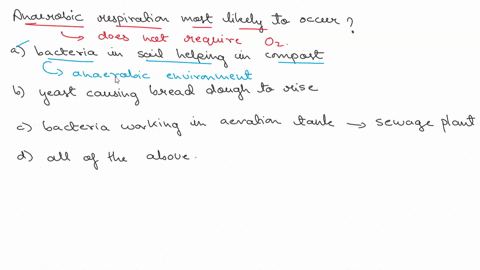 Anaerobic respiration most likely to occur ?
↳ does not require O₂.
✓a) bacteria in soil helping in compost
↳ anaerobic environment
b) yeast causing bread dough to rise
c) bacteria working in aeration tank → sewage plant
d) all of the above.